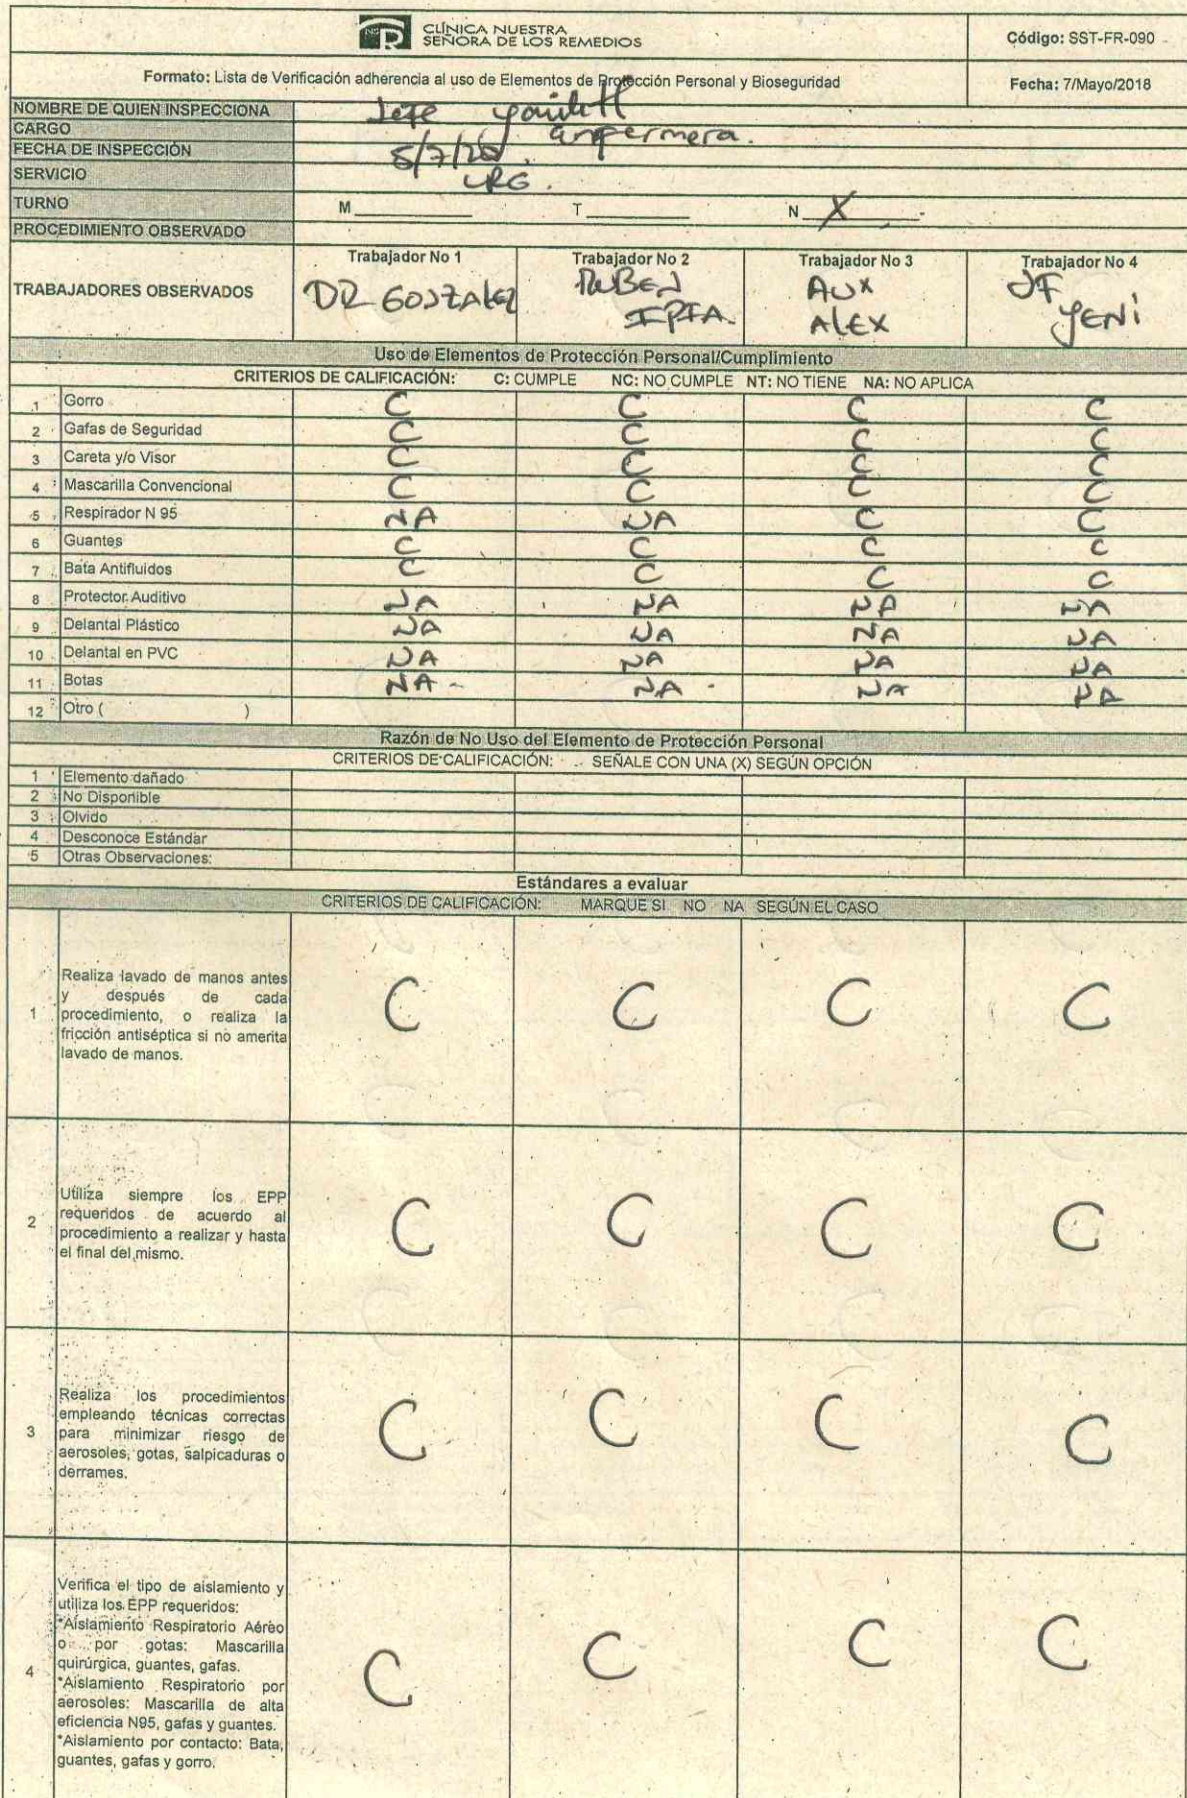 CLÍNICA NUESTRA
SEÑORA DE LOS REMEDIOS
Código: SST-FR-090
Formato: Lista de Verificación adherencia al uso de Elementos de Protección Personal y Bioseguridad
Fecha: 7/Mayo/2018
NOMBRE DE QUIEN INSPECCIONA Jefe
CARGO enfermera.
FECHA DE INSPECCIÓN 5/7/20.
SERVICIO URG.
TURNO M T N X
PROCEDIMIENTO OBSERVADO
TRABAJADORES OBSERVADOS
Trabajador No 1 Trabajador No 2 Trabajador No 3 Trabajador No 4
DR GONZALEZ RUBEN AUX JF
ALEX YENI
Uso de Elementos de Protección Personal/Cumplimiento
CRITERIOS DE CALIFICACIÓN: C: CUMPLE NC: NO CUMPLE NT: NO TIENE NA: NO APLICA
1 Gorro C C C C
2 Gafas de Seguridad C C C C
3 Careta y/o Visor C C C C
4 Mascarilla Convencional C C C C
5 Respirador N 95 NA NA C C
6 Guantes C C C C
7 Bata Antifluidos C C C C
8 Protector Auditivo NA NA NA NA
9 Delantal Plástico NA NA NA NA
10 Delantal en PVC NA NA NA NA
11 Botas NA - NA - NA NA
12 Otro ( )
Razón de No Uso del Elemento de Protección Personal
CRITERIOS DE CALIFICACIÓN: SEÑALE CON UNA (X) SEGÚN OPCIÓN
1 Elemento dañado
2 No Disponible
3 Olvido
4 Desconoce Estándar
5 Otras Observaciones:
Estándares a evaluar
CRITERIOS DE CALIFICACIÓN: MARQUE SI NO NA SEGÚN EL CASO
1 Realiza lavado de manos antes
y después de cada
procedimiento, o realiza la
fricción antiséptica si no amerita
lavado de manos.
C C C C
2 Utiliza siempre los EPP
requeridos de acuerdo al
procedimiento a realizar y hasta
el final del mismo.
C C C C
3 Realiza los procedimientos
empleando técnicas correctas
para minimizar riesgo de
aerosoles, gotas, salpicaduras o
derrames.
C C C C
4 Verifica el tipo de aislamiento y
utiliza los EPP requeridos:
*Aislamiento Respiratorio Aéreo
o por gotas: Mascarilla
quirúrgica, guantes, gafas.
*Aislamiento Respiratorio por
aerosoles: Mascarilla de alta
eficiencia N95, gafas y guantes.
*Aislamiento por contacto: Bata,
guantes, gafas y gorro.
C C C C